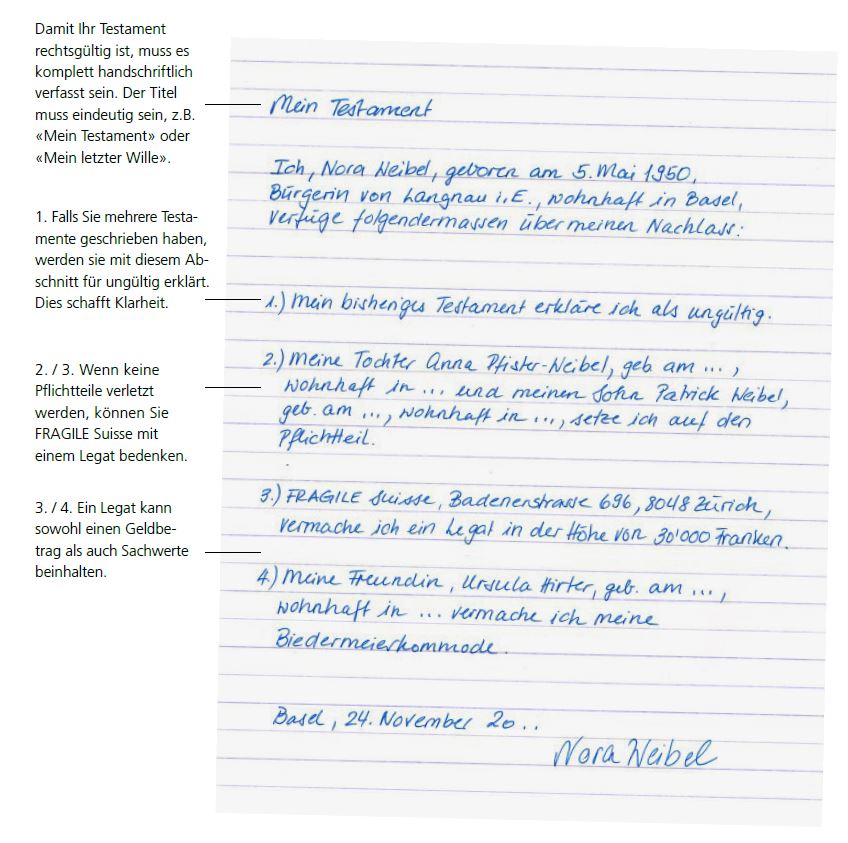 Damit Ihr Testament
rechtsgültig ist, muss es
komplett handschriftlich
verfasst sein. Der Titel
muss eindeutig sein, z.B.
«Mein Testament» oder
«Mein letzter Wille».
1. Falls Sie mehrere Testa-
mente geschrieben haben,
werden sie mit diesem Ab-
schnitt für ungültig erklärt.
Dies schafft Klarheit.
2. / 3. Wenn keine
Pflichtteile verletzt
werden, können Sie
FRAGILE Suisse mit
einem Legat bedenken.
3. / 4. Ein Legat kann
sowohl einen Geldbe-
trag als auch Sachwerte
beinhalten.
Mein Testament
Ich, Nora Weibel, geboren am 5. Mai 1950,
Bürgerin von Langnau i.E., wohnhaft in Basel,
verfüge folgendermassen über meinen Nachlass:
1.) Mein bisheriges Testament erkläre ich als ungültig.
2.) Meine Tochter Anna Pfister-Weibel, geb. am ...,
wohnhaft in ... und meinen Sohn Patrick Weibel,
geb. am ..., wohnhaft in ..., setze ich auf den
Pflichtteil.
3.) FRAGILE Suisse, Badenerstrasse 696, 8048 Zürich,
vermache ich ein Legat in der Höhe von 30'000 Franken.
4.) Meine Freundin, Ursula Hirter, geb. am ...,
wohnhaft in ... vermache ich meine
Biedermeierkommode.
Basel, 24. November 20..
Nora Weibel